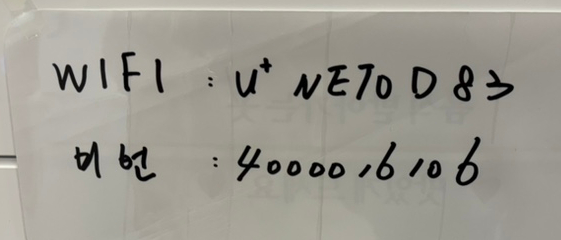 WIFI : U+ NET0D83
비번 : 4000016106